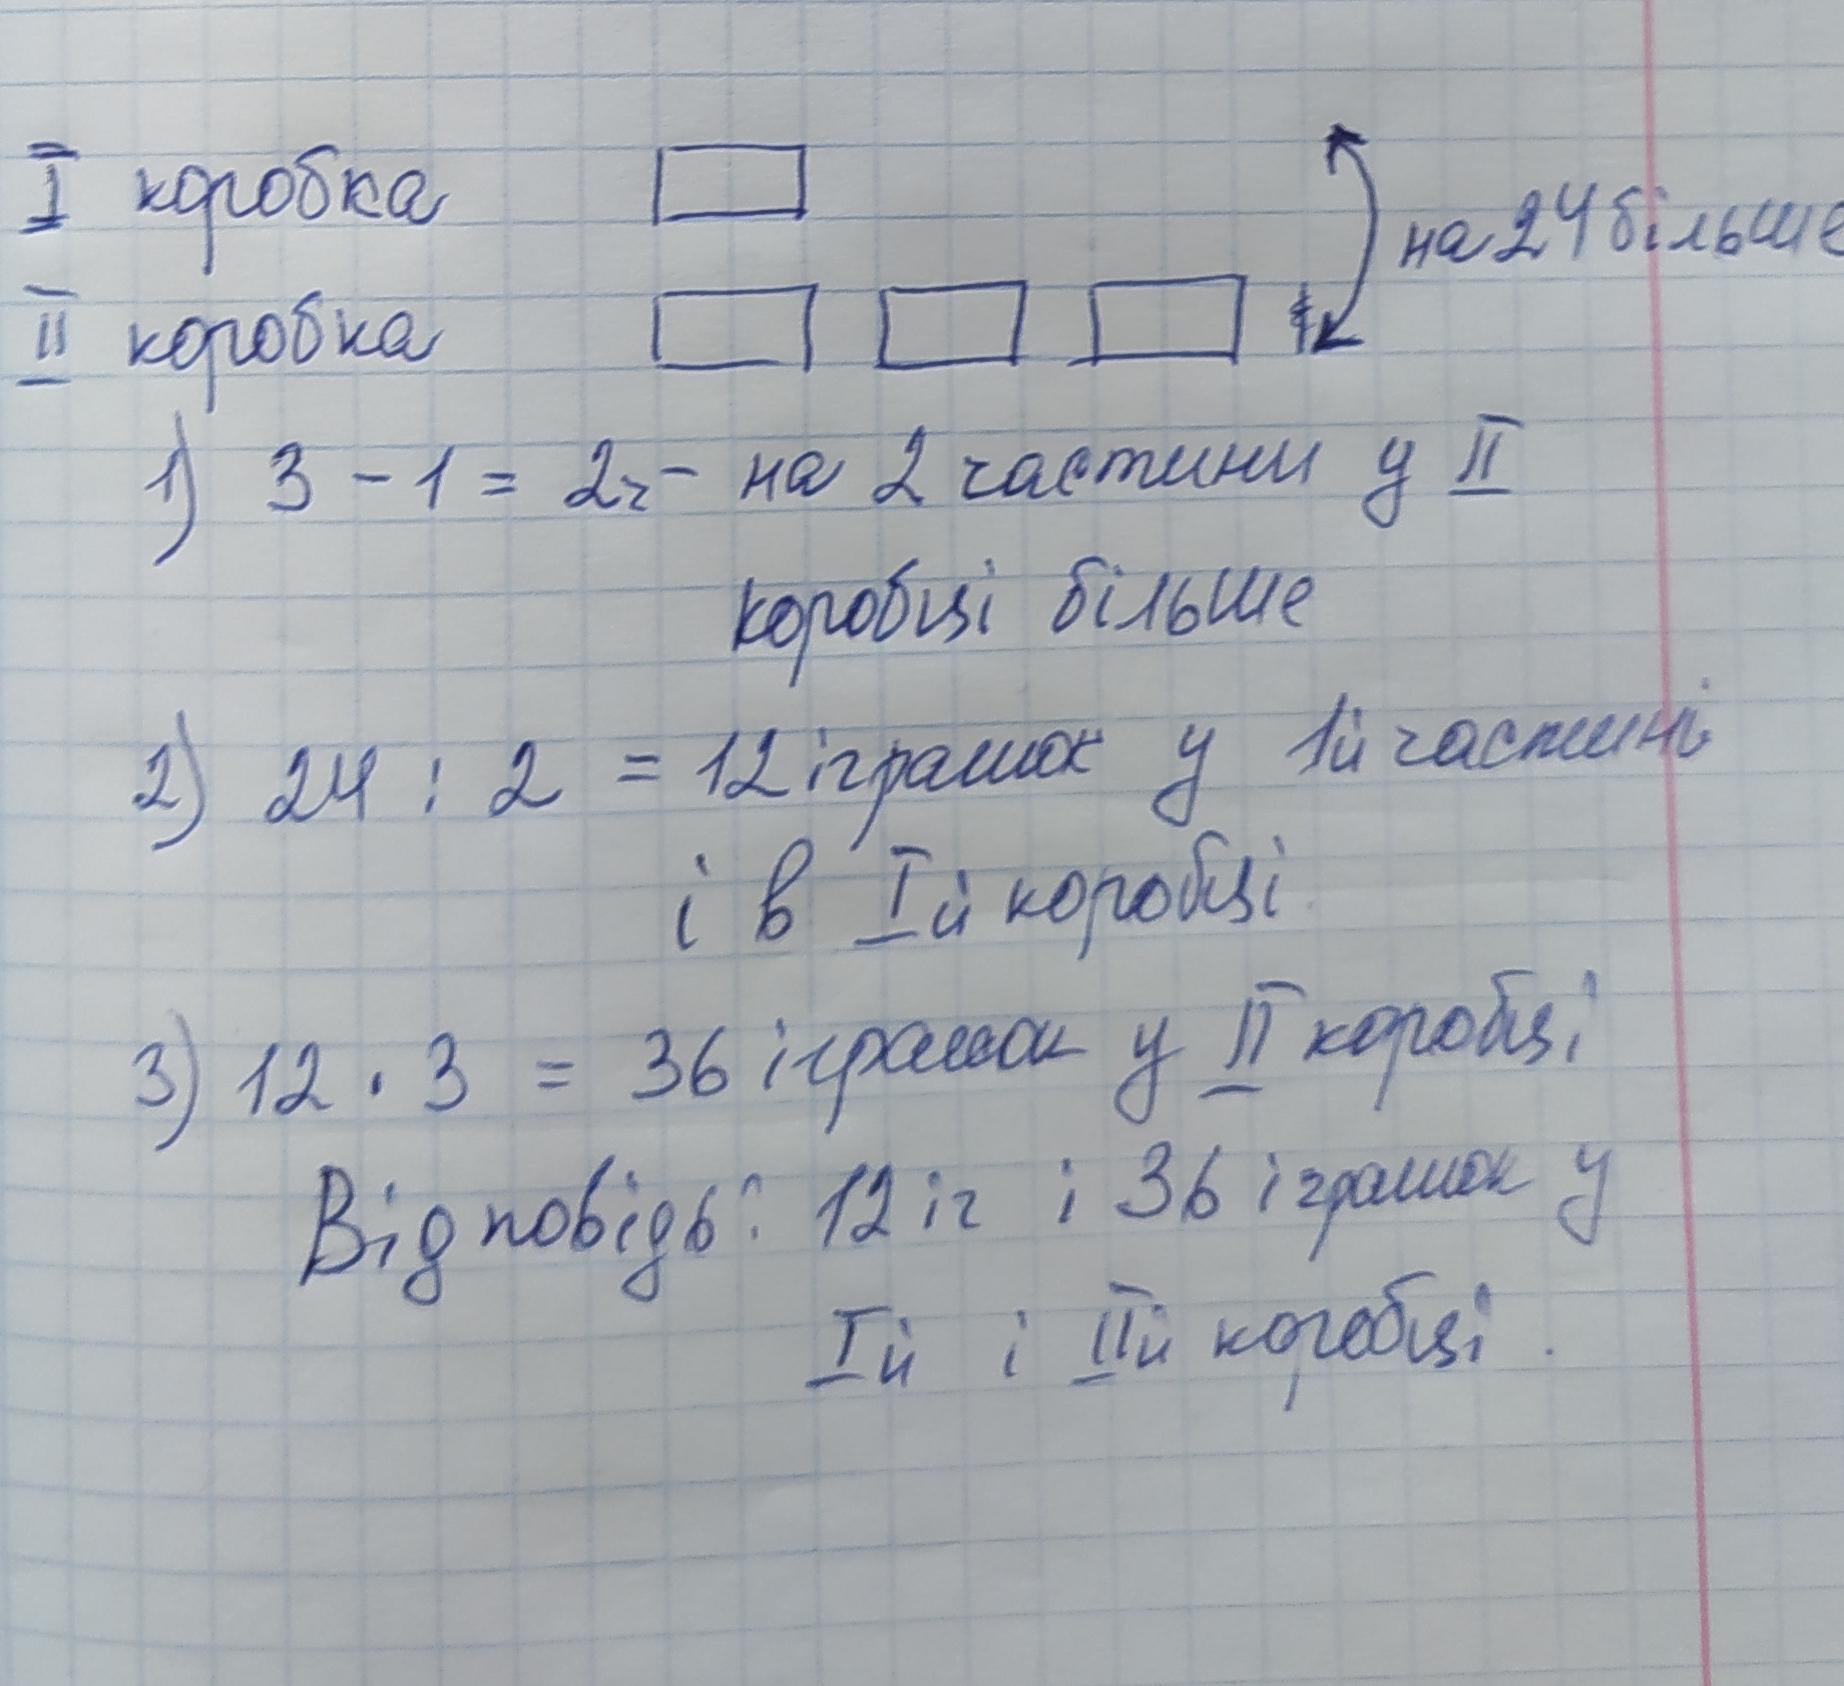 I коробка
на 24 більше
II коробка
1) 3 - 1 = 2ч - на 2 частини у II
коробці більше
2) 24 : 2 = 12 іграшок у 1й частині
і в Iй коробці.
3) 12 · 3 = 36 іграшок у II коробці
Відповідь: 12 іг і 36 іграшок у
Iй і IIй коробці.